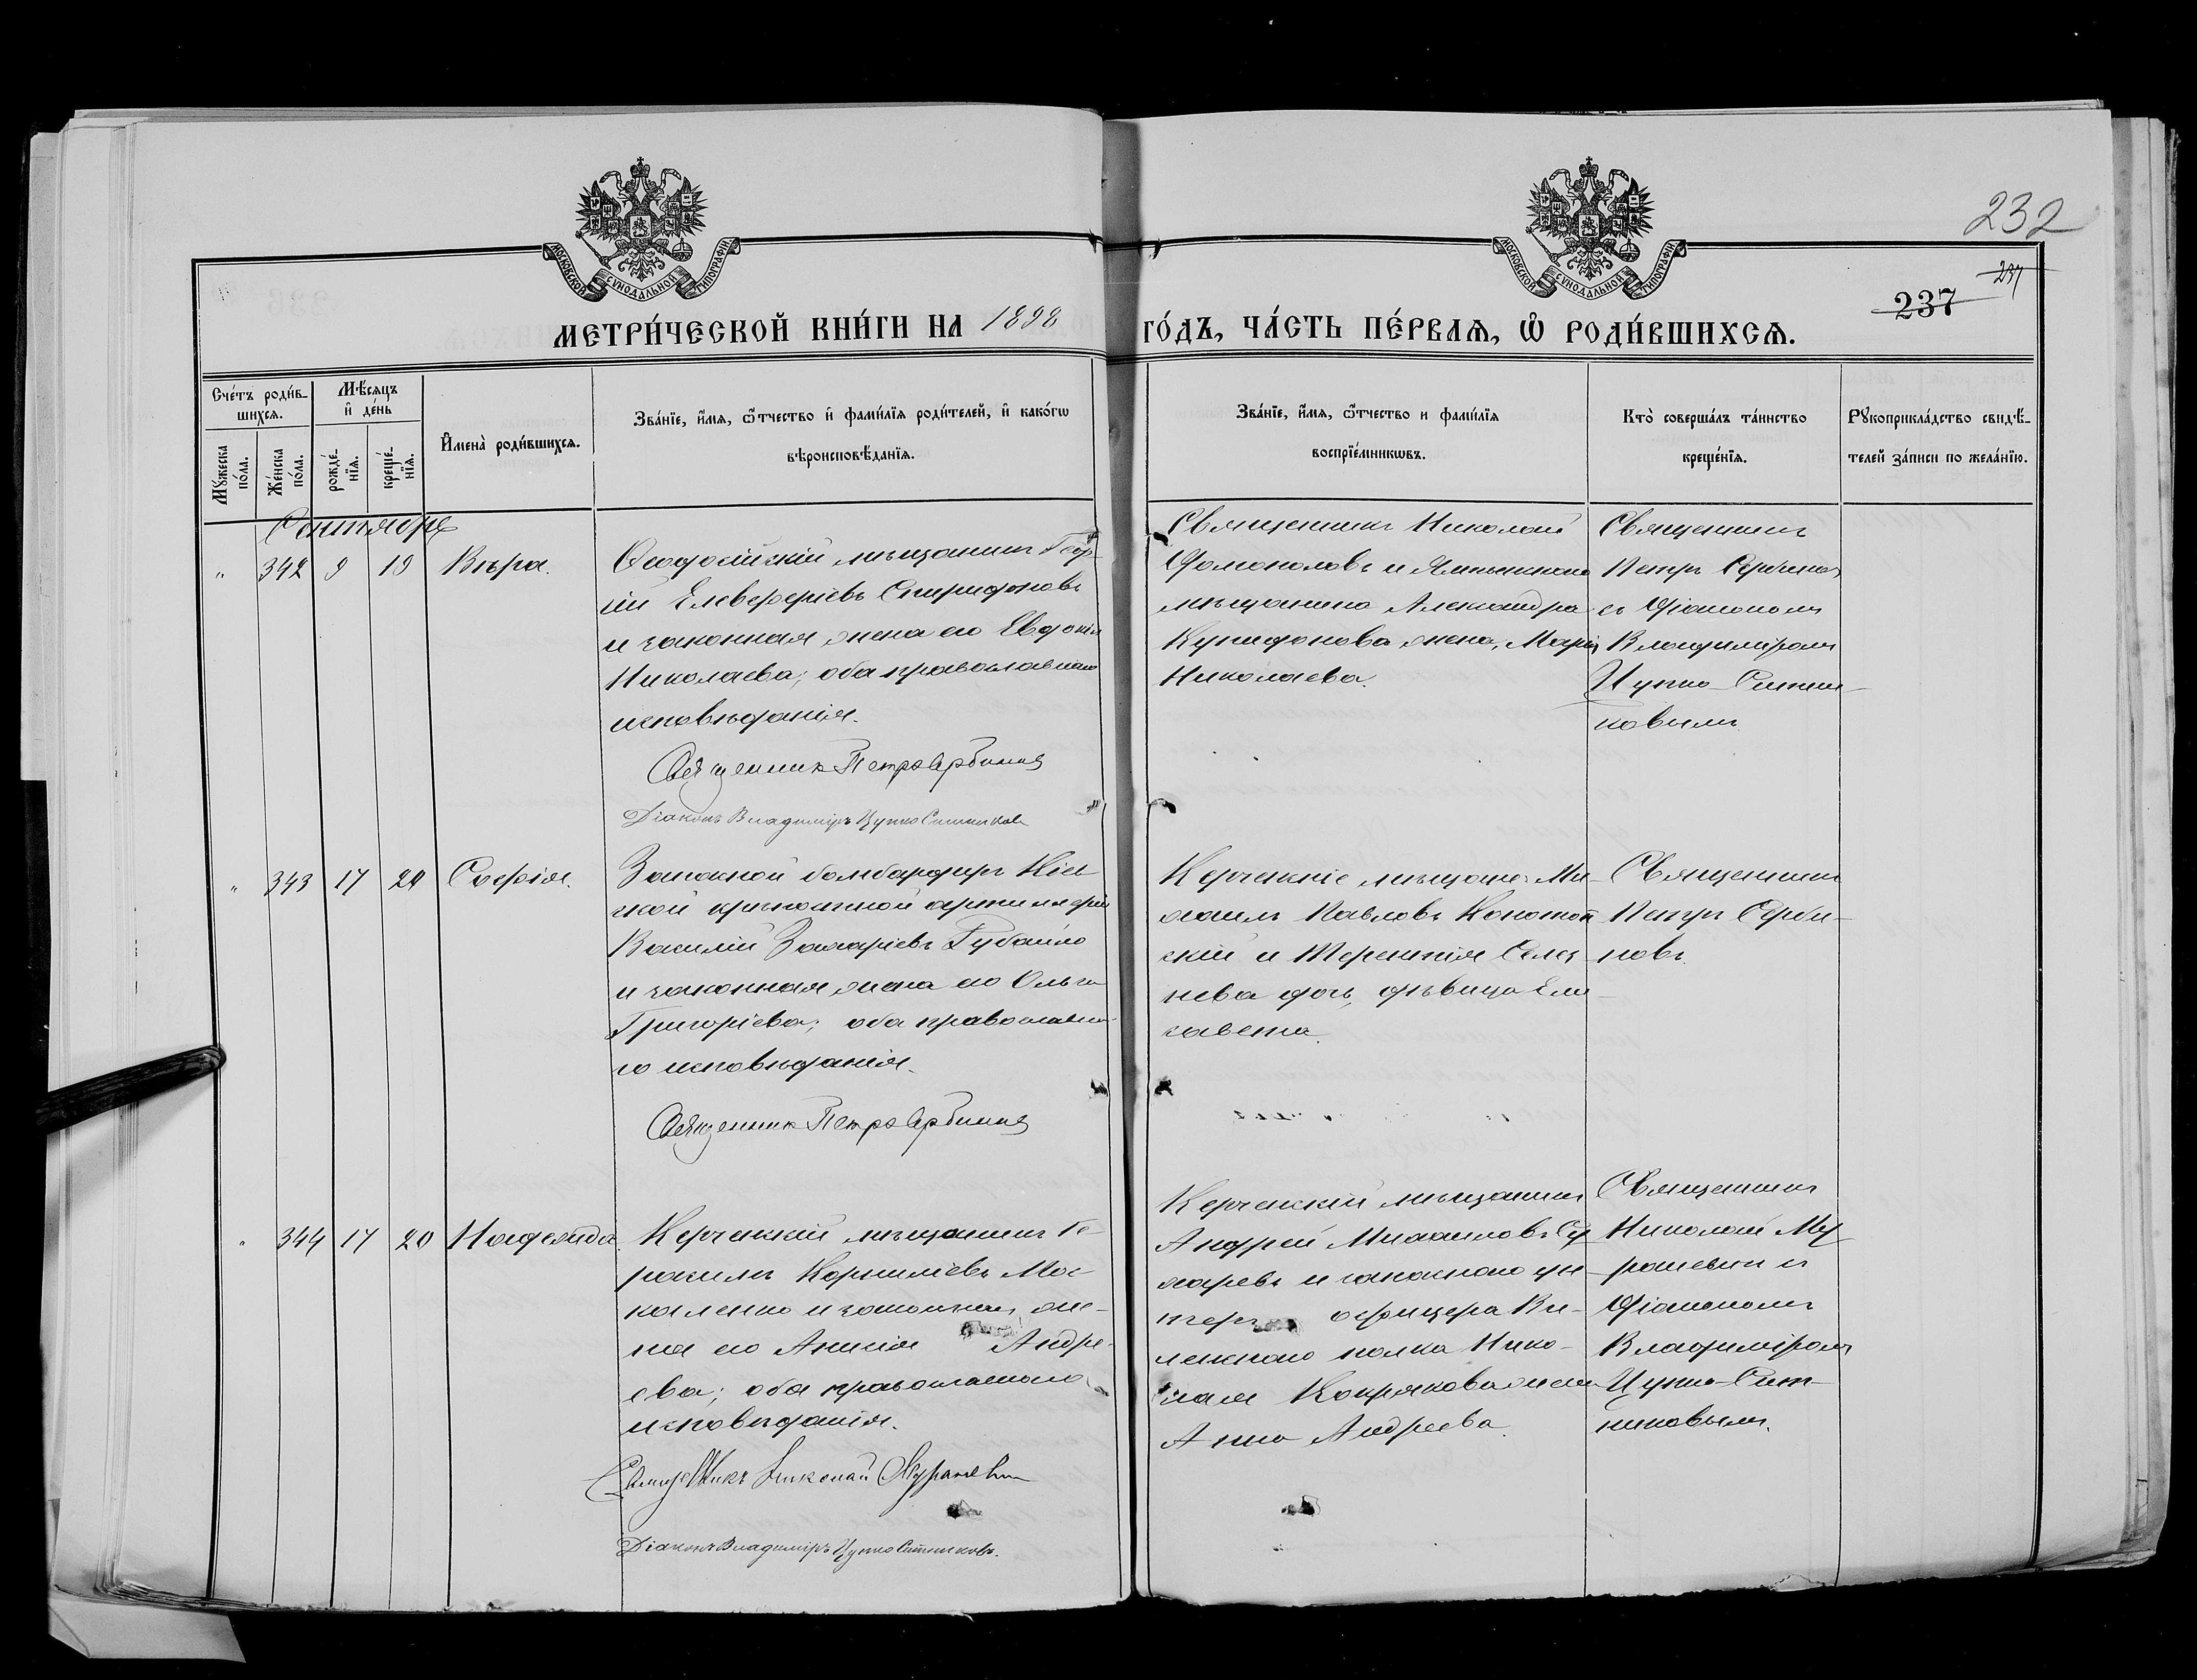 232
237
237
МОСКОВСКОЙ СѴНОДАЛЬНОЙ ТИПОГРАФІИ
МОСКОВСКОЙ СѴНОДАЛЬНОЙ ТИПОГРАФІИ
МЕТРИ́ЧЕСКОЙ КНИ́ГИ НА 1898 ГО́ДЪ, ЧА́СТЬ ПЕ́РВАЯ, Ѽ РОДИ́ВШИХСЯ.
Сче́тъ роди́в-
шихся.
Мѣ́сяцъ
и҆ де́нь
Мꙋ́жеска по́ла.
Же́нска по́ла.
рожде́-нїѧ.
креще́-нїѧ.
И҆мена̀ роди́вшихся.
Зва́нїе, и҆́мя, ѻ҆́тчество и҆ фами́лїя роди́телей, и҆ како́гѡ
вѣроисповѣ́данїя.
Зва́нїе, и҆́мя, ѻ҆́тчество и фами́лїя
воспрїе́мникѡвъ.
Кто̀ соверша́лъ та́инство
креще́нїя.
Рꙋкоприкла́дство свидѣ́-
телей за́писи по жела́нїю.
Сентябрь
" 342 9 19 Вѣра.
Ѳеодосійскій мѣщанинъ Геор-
гій Елевферіевъ Спиридоновъ
и законная жена его Евдокія
Николаева; оба православнаго
исповѣданія.
Священникъ Петръ Сербиновъ
Діаконъ Владиміръ Цупко Ситниковъ
Священникъ Николай
мѣщанина Александра
жена, Марія
Николаева.
Священникъ
Петръ Сербиновъ
съ Діакономъ
Владиміромъ
Цупко-Ситни-
ковымъ
" 343 17 20 Софія.
Запасной бомбардиръ Кіев
ской крѣпостной артиллеріи
Василій Захаріевъ Губайло
и законная жена его Ольга
Григоріева; оба православна-
го исповѣданія.
Священникъ Петръ Сербиновъ
Керченскіе мѣщане: Ми-
хаилъ Павловъ Конотоп
скій и Терентія Селез
нева дочь, дѣвица Ели-
савета.
Священникъ
Петръ Серби-
новъ
" 344 17 20 Надежда.
Керченскій мѣщанинъ Ге-
расимъ Корниліевъ Мос-
каленко и законная же-
на его Андре-
ева; оба православнаго
исповѣданія.
Священникъ Николай Мурашевичъ
Діаконъ Владиміръ Цупко Ситниковъ.
Керченскій мѣщанинъ
Андрей Михаиловъ Су
харевъ и запаснаго ун
теръ офицера Ви-
ленскаго полка Нико-
лая жена
Анна Андреева.
Священникъ
Николай Му-
рашевичъ съ
Діакономъ
Владиміромъ
Цупко-Сит-
никовымъ.